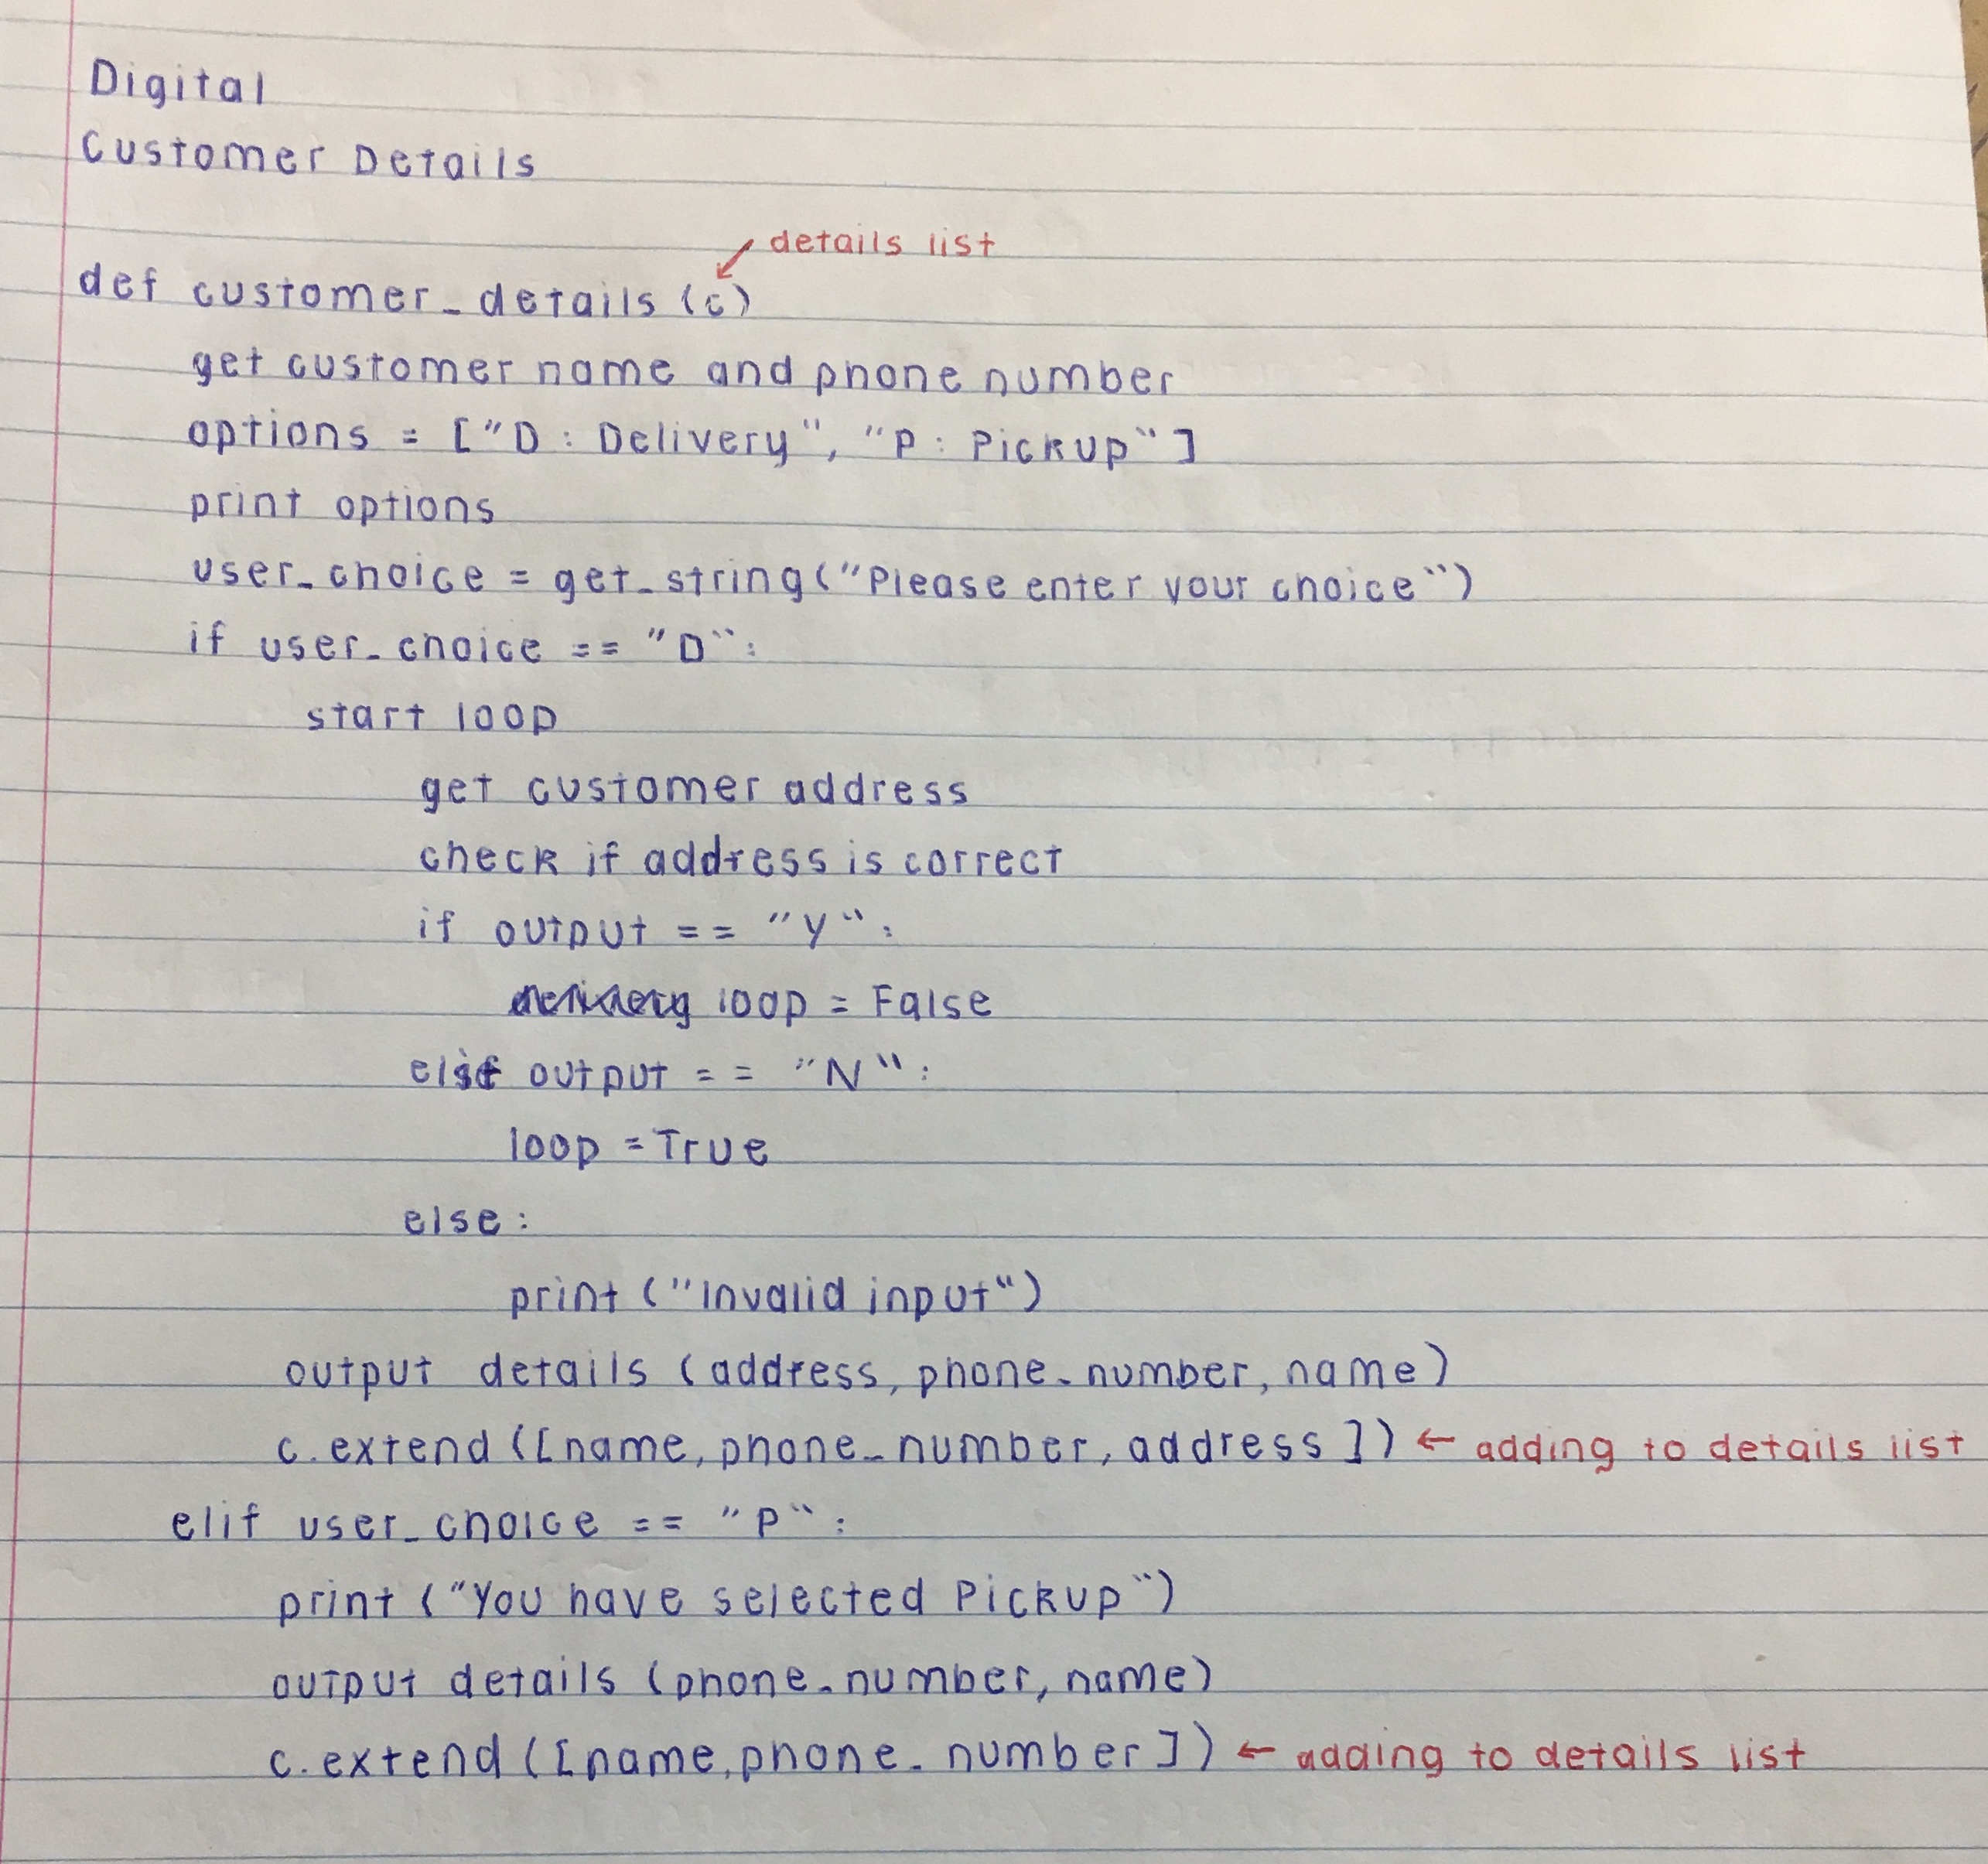 Digital
Customer Details
details list
def customer_details (c)
get customer name and phone number
options = ["D : Delivery", "P : Pickup"]
print options
user_choice = get_string("Please enter your choice")
if user_choice == "D":
start loop
get customer address
check if address is correct
if output == "Y":
loop = False
elif output == "N":
loop = True
else:
print ("Invalid input")
output details (address, phone_number, name)
c.extend ([name, phone_number, address]) ← adding to details list
elif user_choice == "P":
print ("You have selected Pickup")
output details (phone_number, name)
c.extend ([name, phone_number]) ← adding to details list